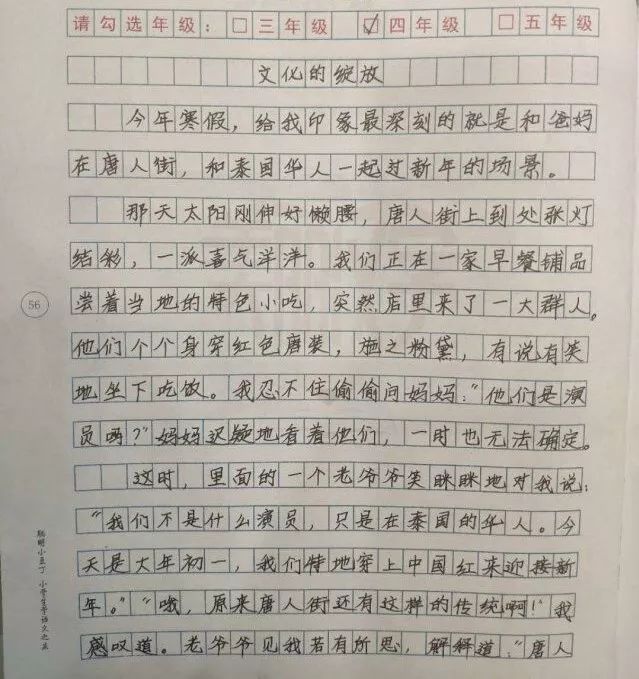 请勾选年级：□三年级 ☑四年级 □五年级
文化的绽放
今年寒假，给我印象最深刻的就是和爸妈
在唐人街，和泰国华人一起过新年的场景。
那天太阳刚伸好懒腰，唐人街上到处张灯
结彩，一派喜气洋洋。我们正在一家早餐铺品
尝着当地的特色小吃，突然店里来了一大群人。
他们个个身穿红色唐装，施之粉黛，有说有笑
地坐下吃饭。我忍不住偷偷问妈妈：“他们是演
员吗？”妈妈迟疑地看着他们，一时也无法确定。
这时，里面的一个老爷爷笑眯眯地对我说：
“我们不是什么演员，只是在泰国的华人。今
天是大年初一，我们特地穿上中国红来迎接新
年。”“哦，原来唐人街还有这样的传统啊！”我
感叹道。老爷爷见我若有所思，解释道：“唐人
56
聪明小豆丁 小学生学语文之星